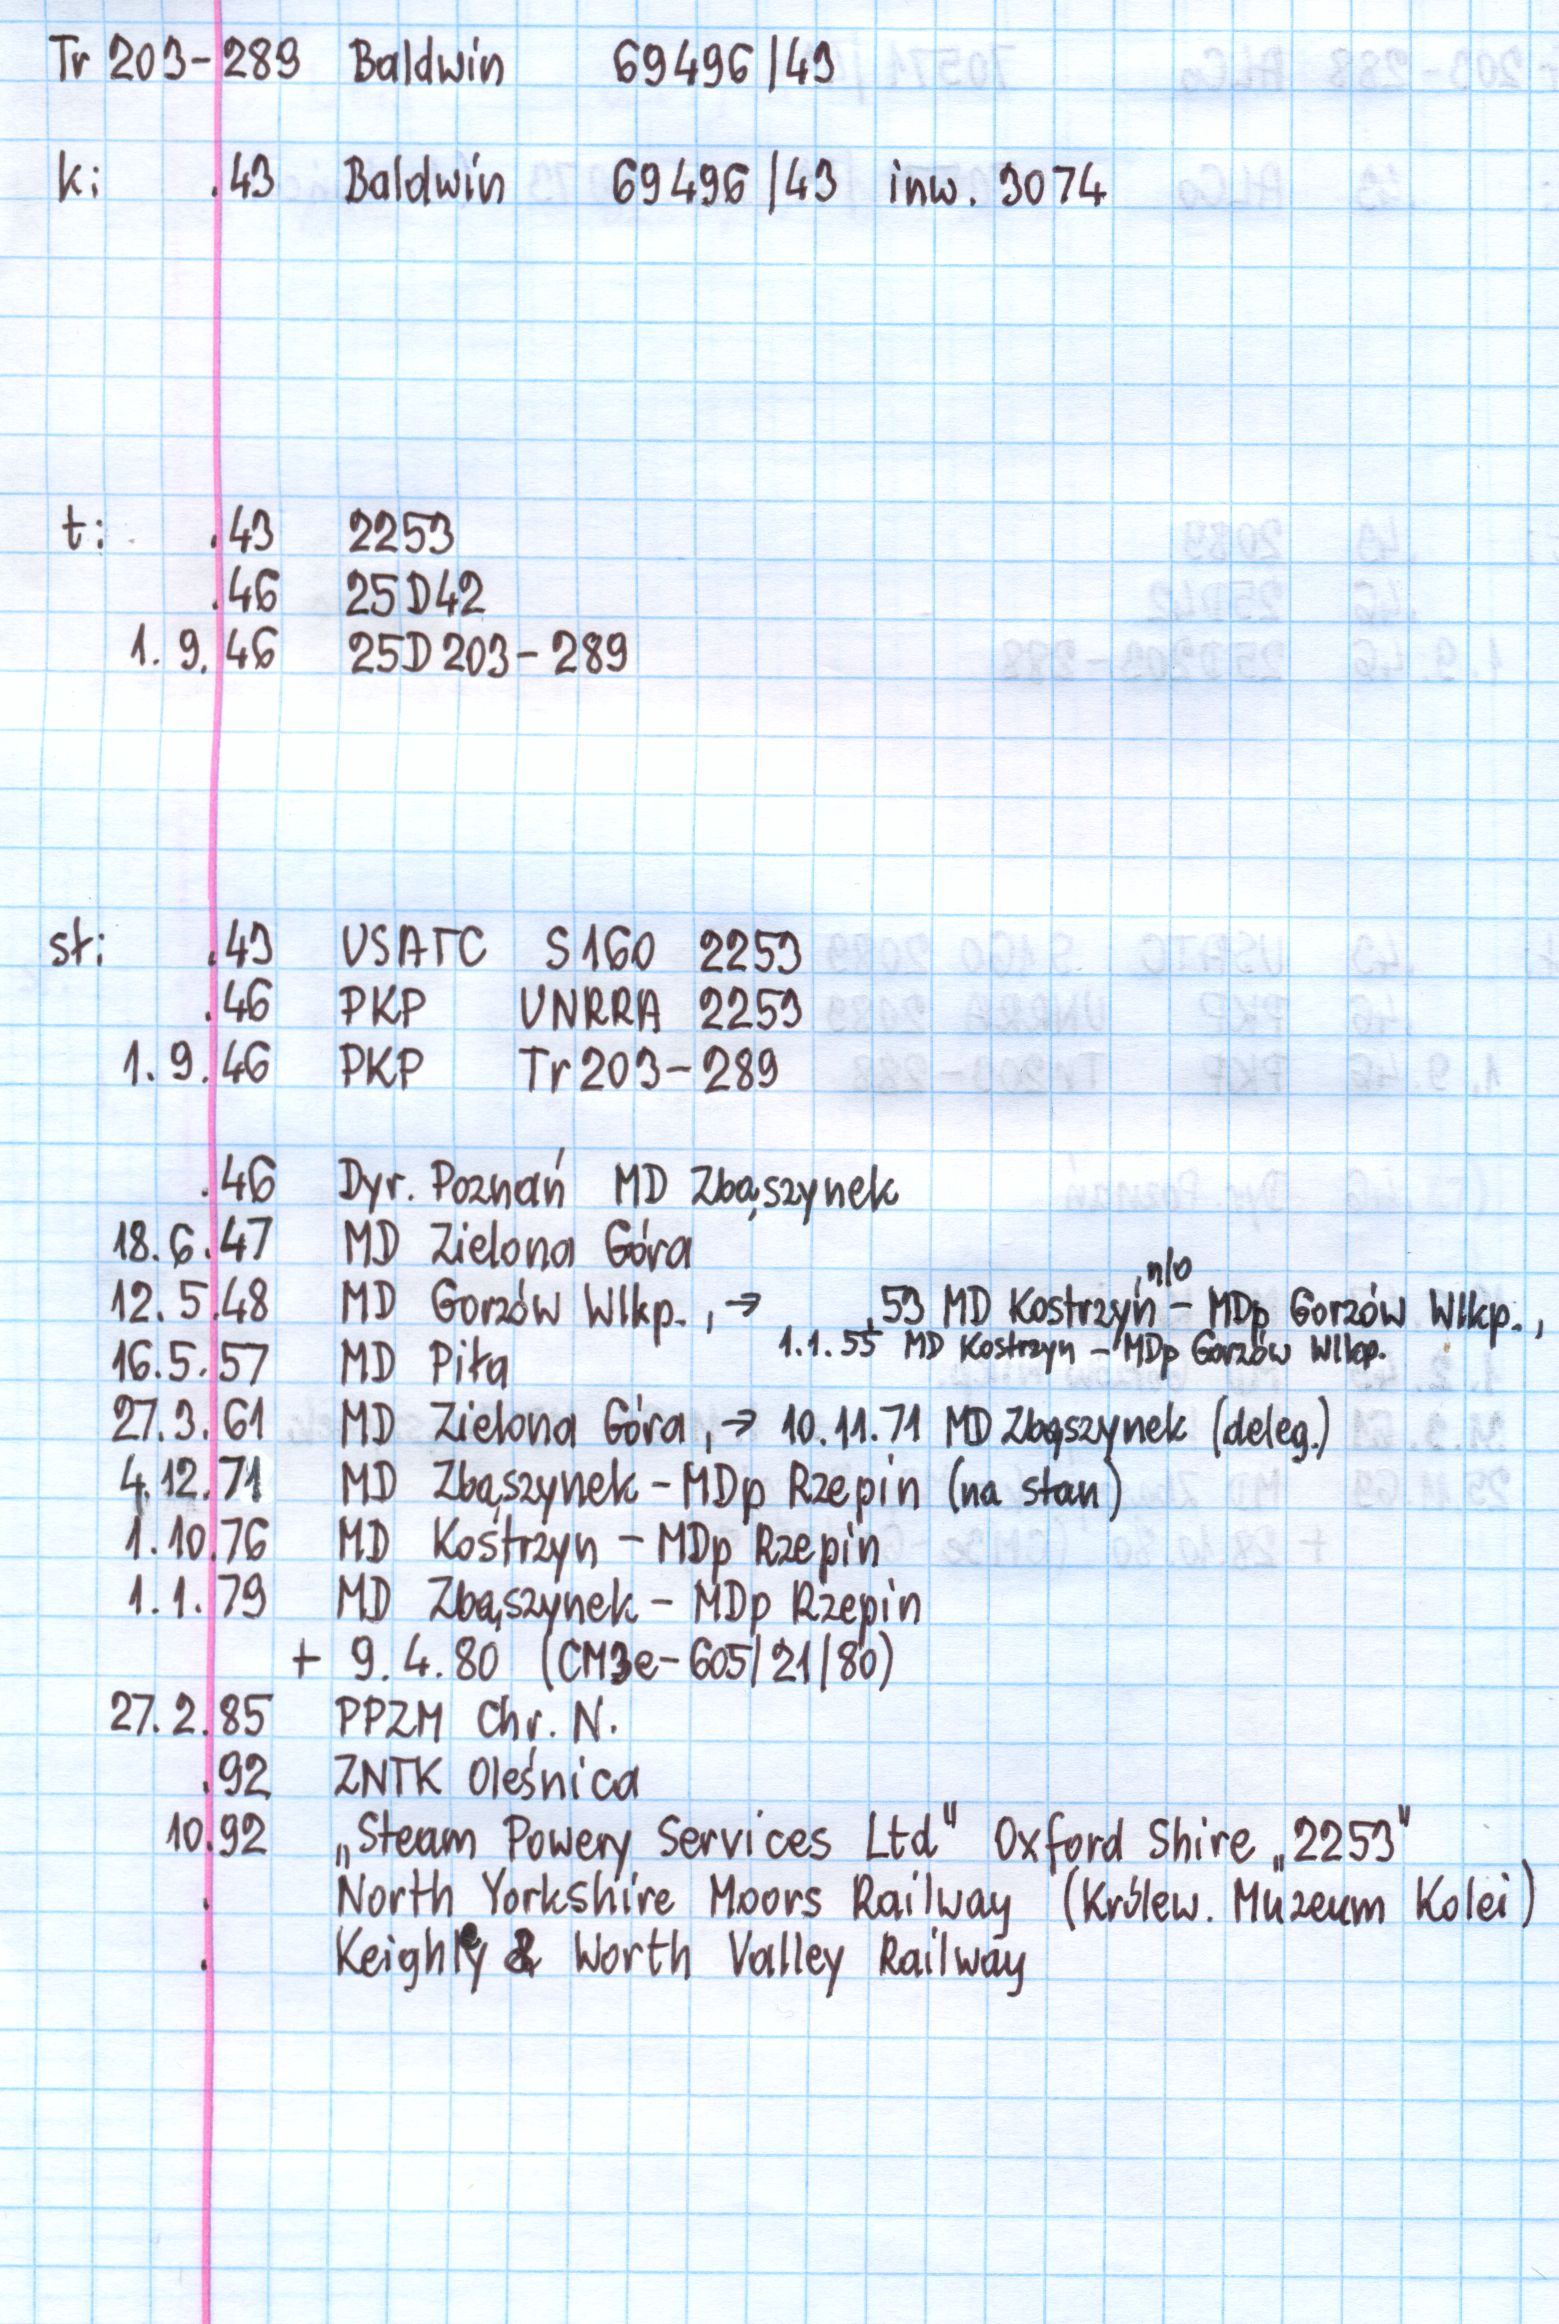 Tr 203-289 Baldwin 69496/43
k: .43 Baldwin 69496/43 inw. 3074
t: .43 2253
.46 25D42
1.9.46 25D203-289
st: .43 USATC S160 2253
.46 PKP UNRRA 2253
1.9.46 PKP Tr203-289
.46 Dyr. Poznań MD Zbąszynek
18.6.47 MD Zielona Góra
n/o
12.5.48 MD Gorzów Wlkp., → .53 MD Kostrzyń - MDp Gorzów Wlkp.,
1.1.55 MD Kostrzyn - MDp Gorzów Wlkp.
16.5.57 MD Piła
27.3.61 MD Zielona Góra, → 10.11.71 MD Zbąszynek (deleg.)
4.12.71 MD Zbąszynek - MDp Rzepin (na stan)
1.10.76 MD Kostrzyn - MDp Rzepin
1.1.79 MD Zbąszynek - MDp Rzepin
+ 9.4.80 (CM3e-605/21/80)
27.2.85 PPZM Chr. N.
.92 ZNTK Oleśnica
10.92 „Steam Powery Services Ltd" Oxford Shire „2253"
. North Yorkshire Moors Railway (Królew. Muzeum Kolei)
. Keighley & Worth Valley Railway